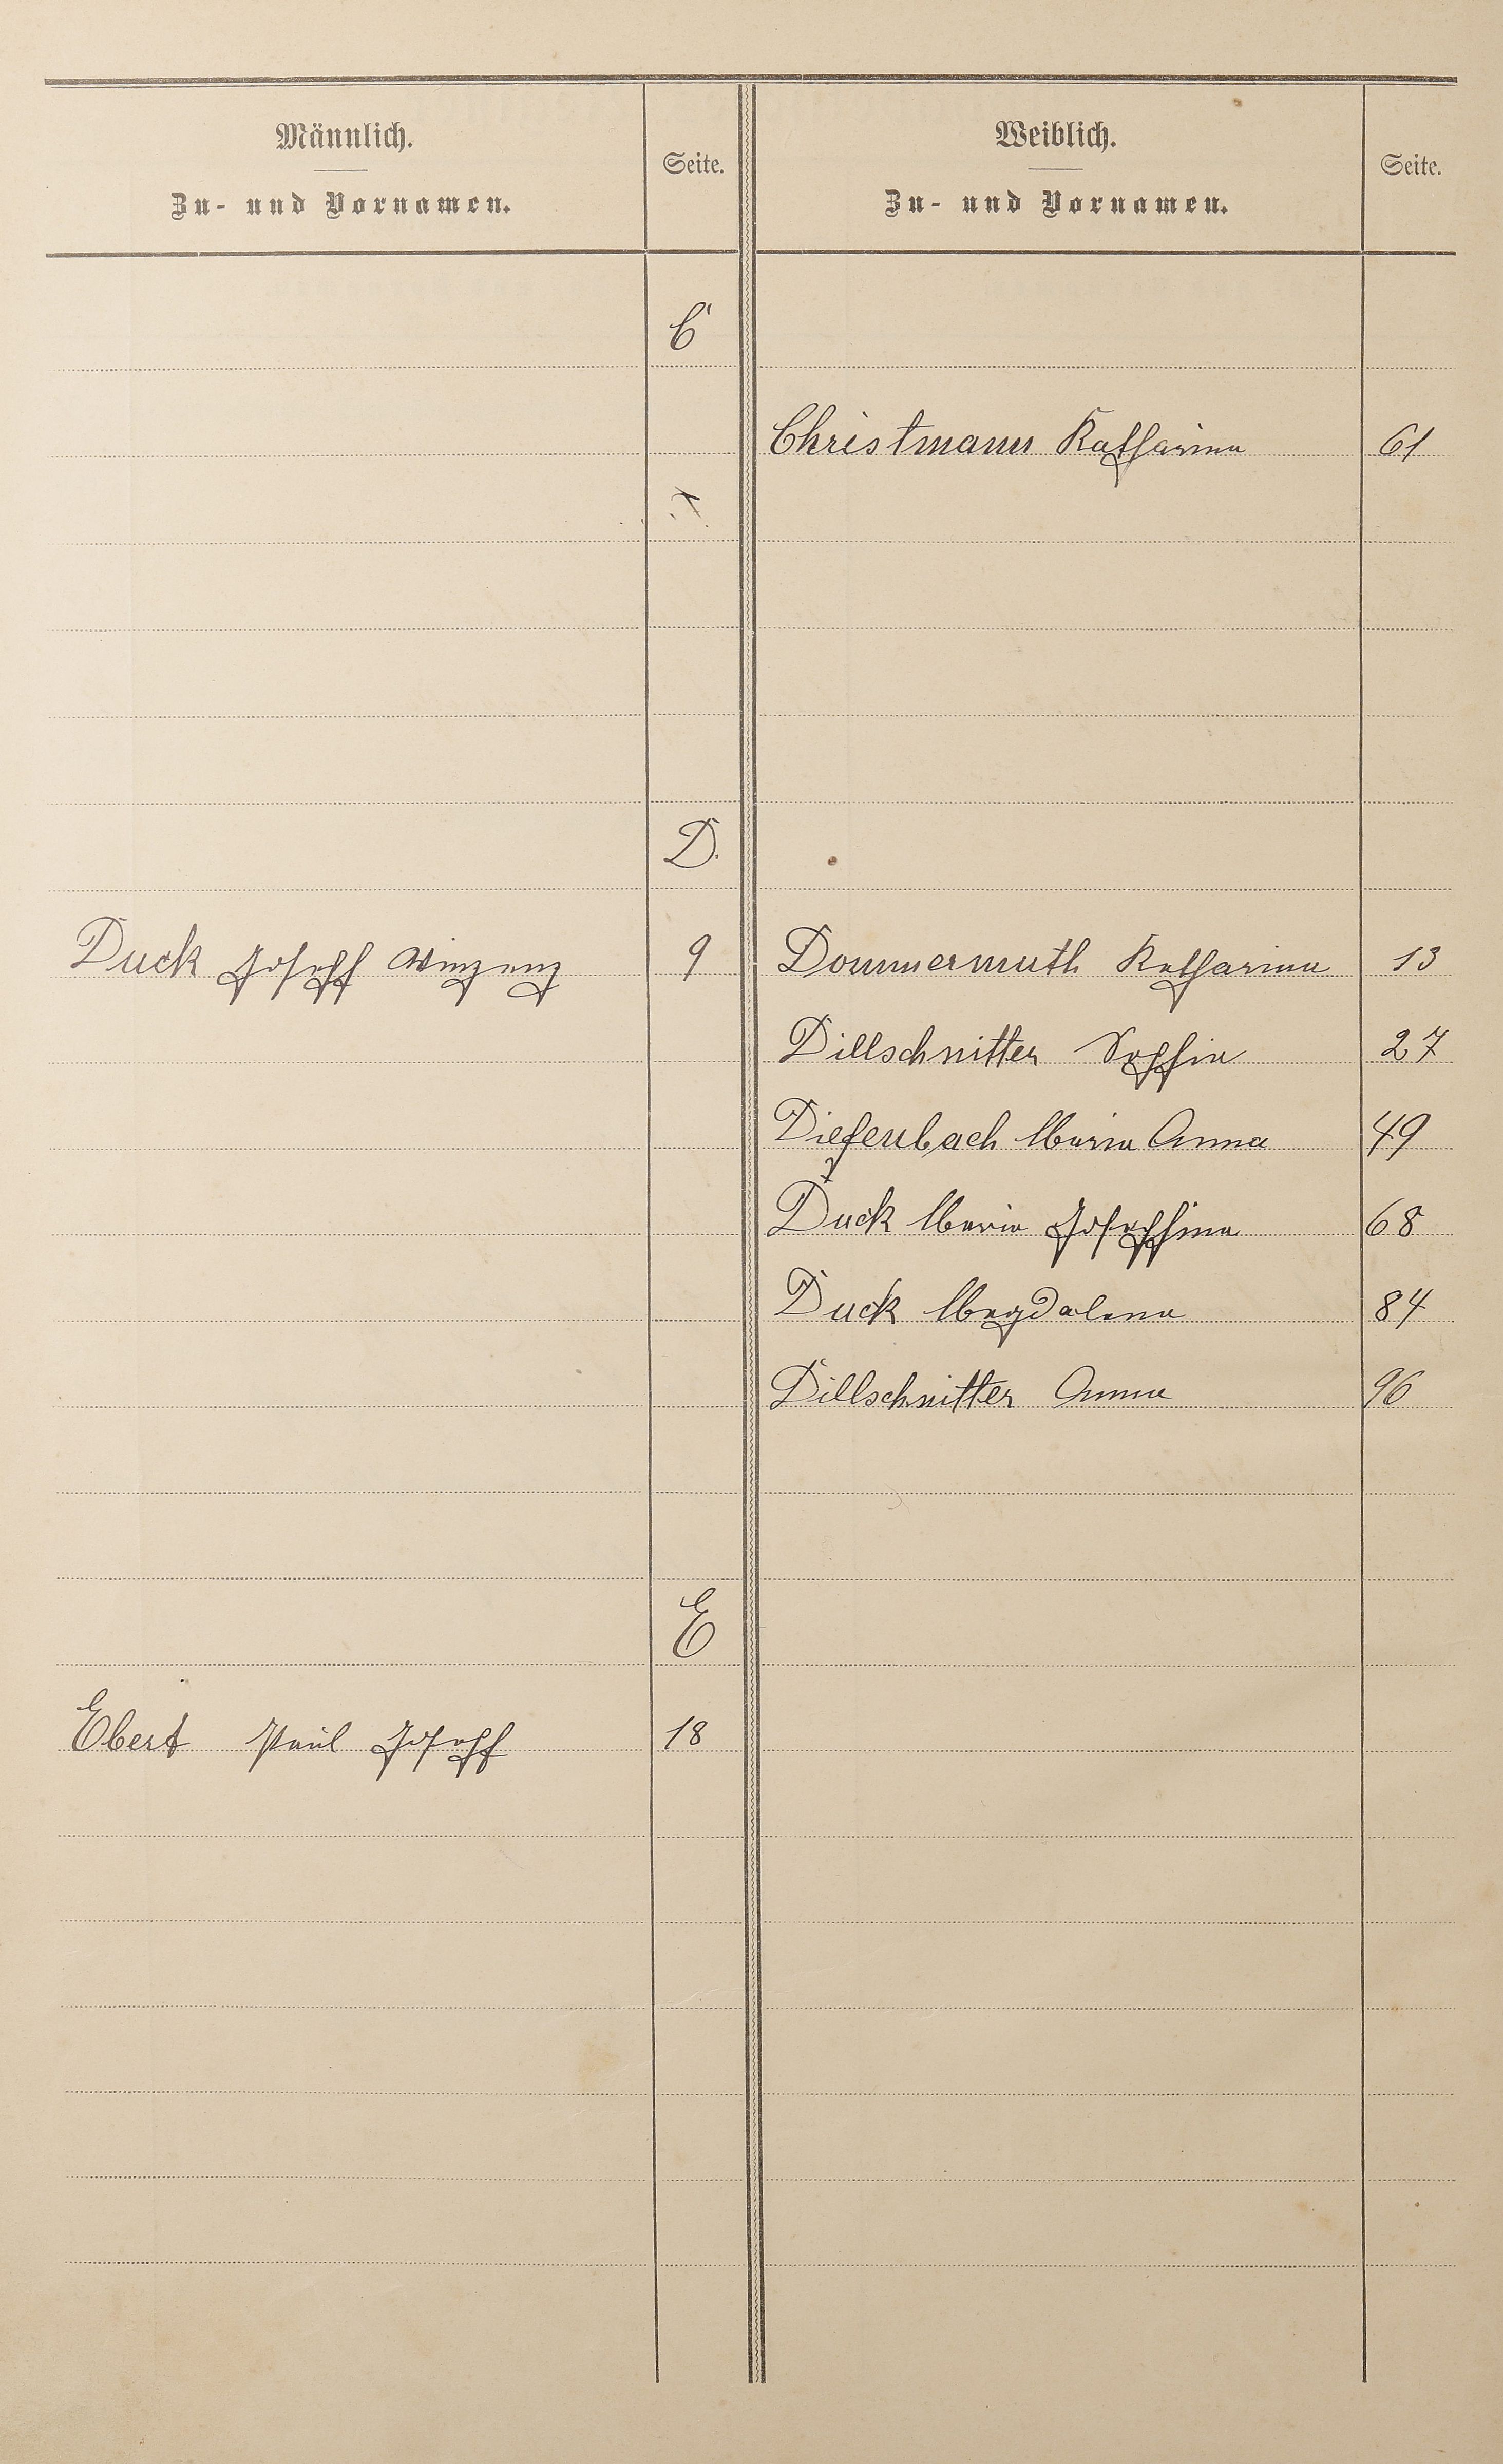 Männlich.
Zu- und Vornamen.
Seite.
Weiblich.
Zu- und Vornamen.
Seite.
C
Christmann Katharina 61
D.
Duck Joseph Winzenz 9 Dommermuth Katharina 13
Dillschnitter Sophia 27
Diefenbach Maria Anna 49
Duck Maria Josephina 68
Duck Magdalena 84
Dillschnitter Anna 96
E
Ebert Paul Joseph 18